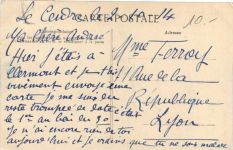 Le Cendre le 2 14
CARTE POSTALE
10.-
Ma chère Andrée
Adresse
Mme Ferroy
Hier j'étais à
Clermont et je t'ai
Rue de la
vivement envoyé une
République
carte je me suis du
reste trompée de date c'était
Lyon
le 1er au lieu du 30
Je n'ai encore rien de toi
aujourd'hui et je crains que tu ne sois malade